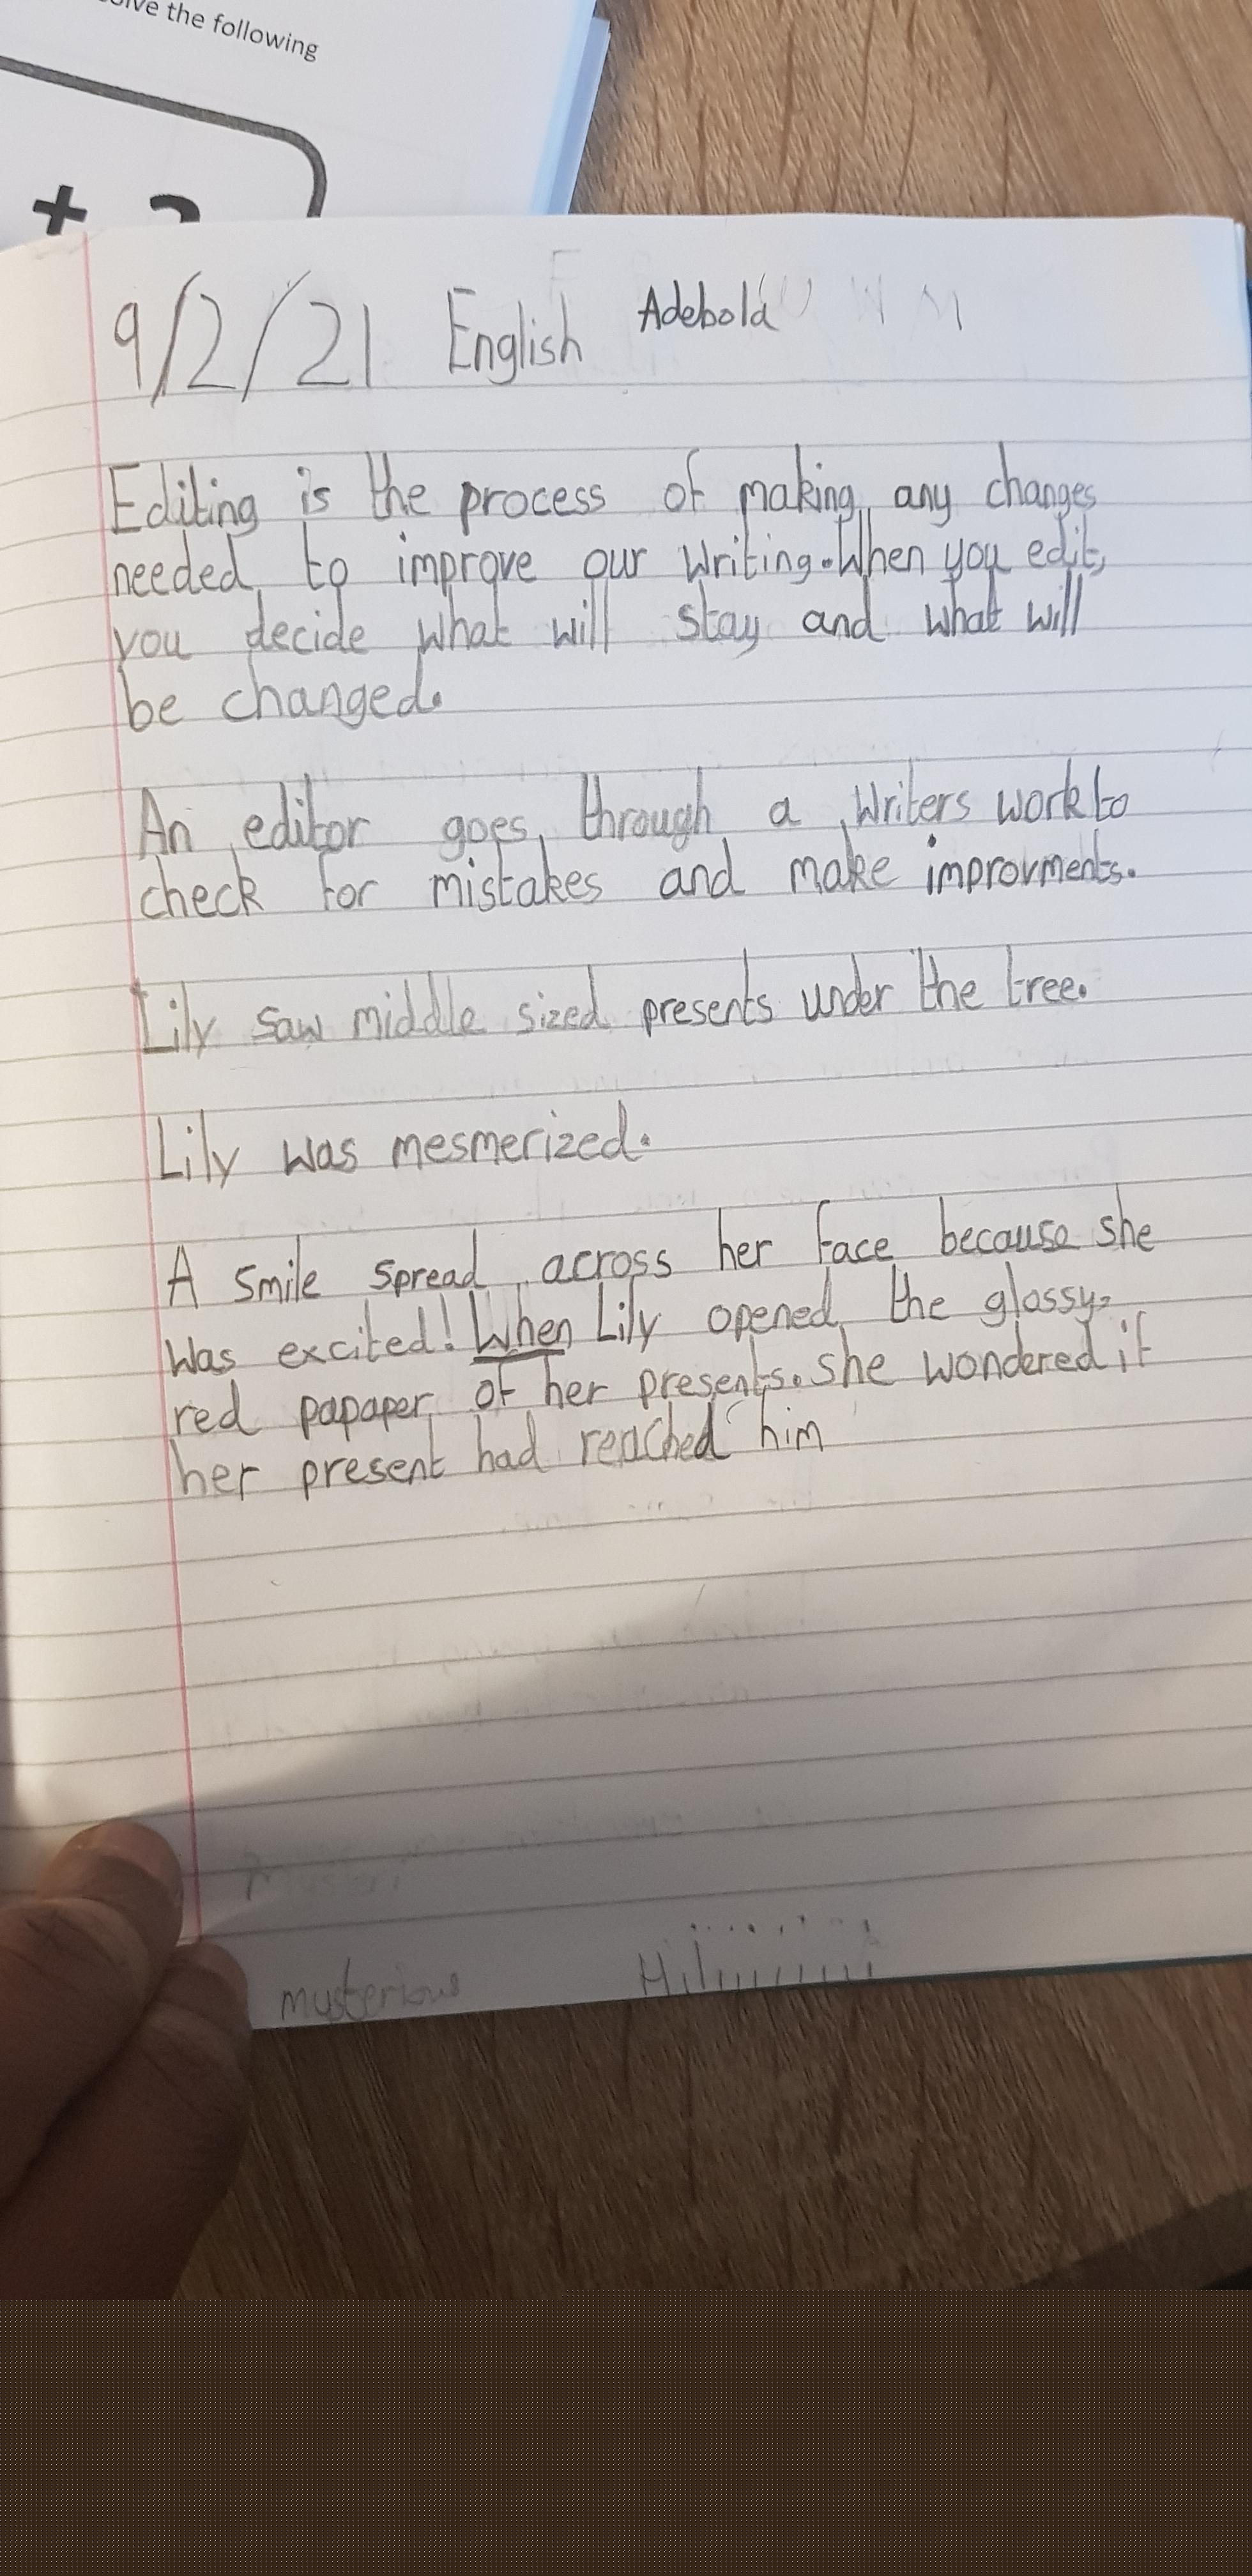 the following
+ 2
9/2/21 English Adebola
Editing is the process of making any changes
needed to improve our writing. When you edit,
you decide what will stay and what will
be changed.
An editor goes through a writers work to
check for mistakes and make improvments.
Lily saw middle sized presents under the tree.
Lily was mesmerized.
A smile spread across her face because she
was excited! When Lily opened the glossy,
red papaper of her presents. she wondered if
her present had reached him
mysterious